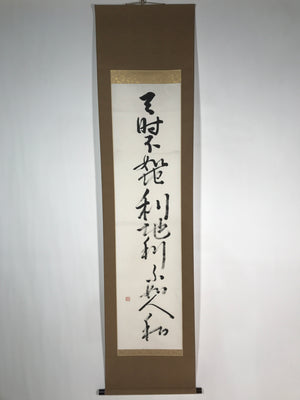 天時不如地利地利不如人和